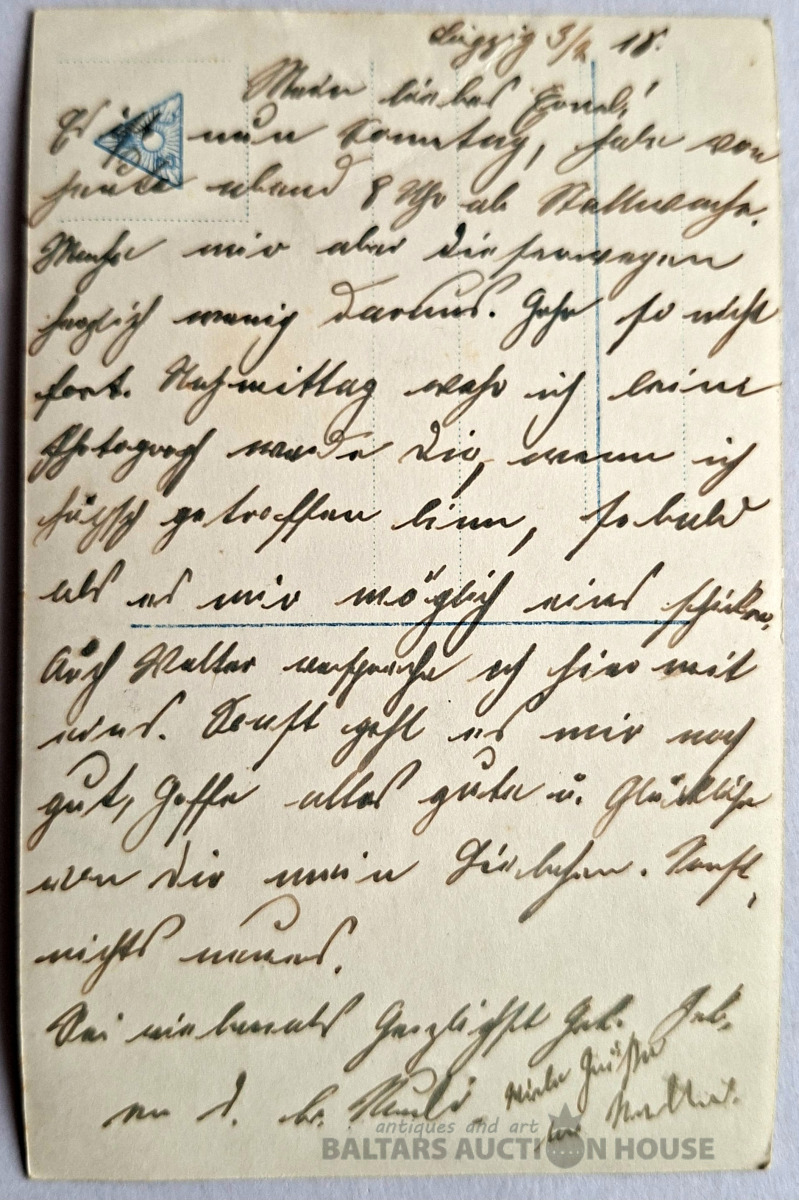 Leipzig 3/2 18.
Mein liebes
Es ist nun Sonntag, habe von
heute abend 8 Uhr ab Stallwache.
Mache mir aber dieserwegen
herzlich wenig daraus. Gehe so nicht
fort. Nachmittag ich beim
Photograph werde Dir, wenn ich
hübsch getroffen binn, sobald
als es mir möglich eins schicken.
Auch Walter verspreche ich hiermit
eins. Sonst geht es mir noch
gut, Hoffe alles gute u. Glückliche
von Dir mein Liebchen. Sonst
nichts neues.
Sei vielmals Herzlichst Geg. Gek.
v. d. Viele Grüße
an
antiques and art
BALTARS AUCTION HOUSE